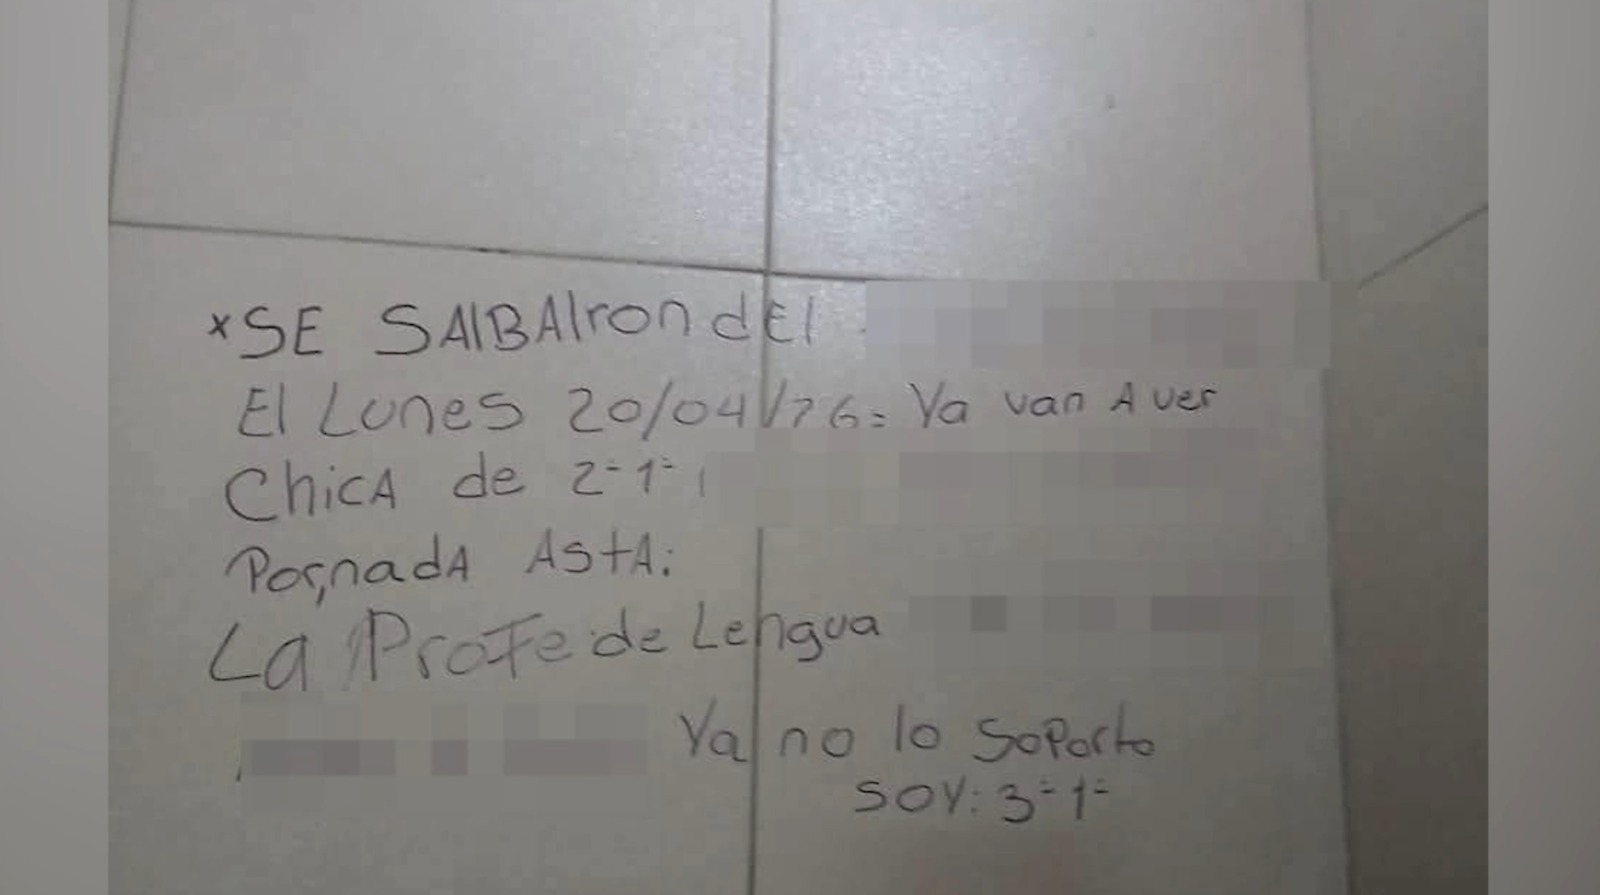 *SE SAlBAlron dEl
El Lunes 20/04/26= Ya van A ver
ChicA de 2-1-
AStA:
La Profe de Lengua
Ya no lo Soporto
SOY: 3-1-